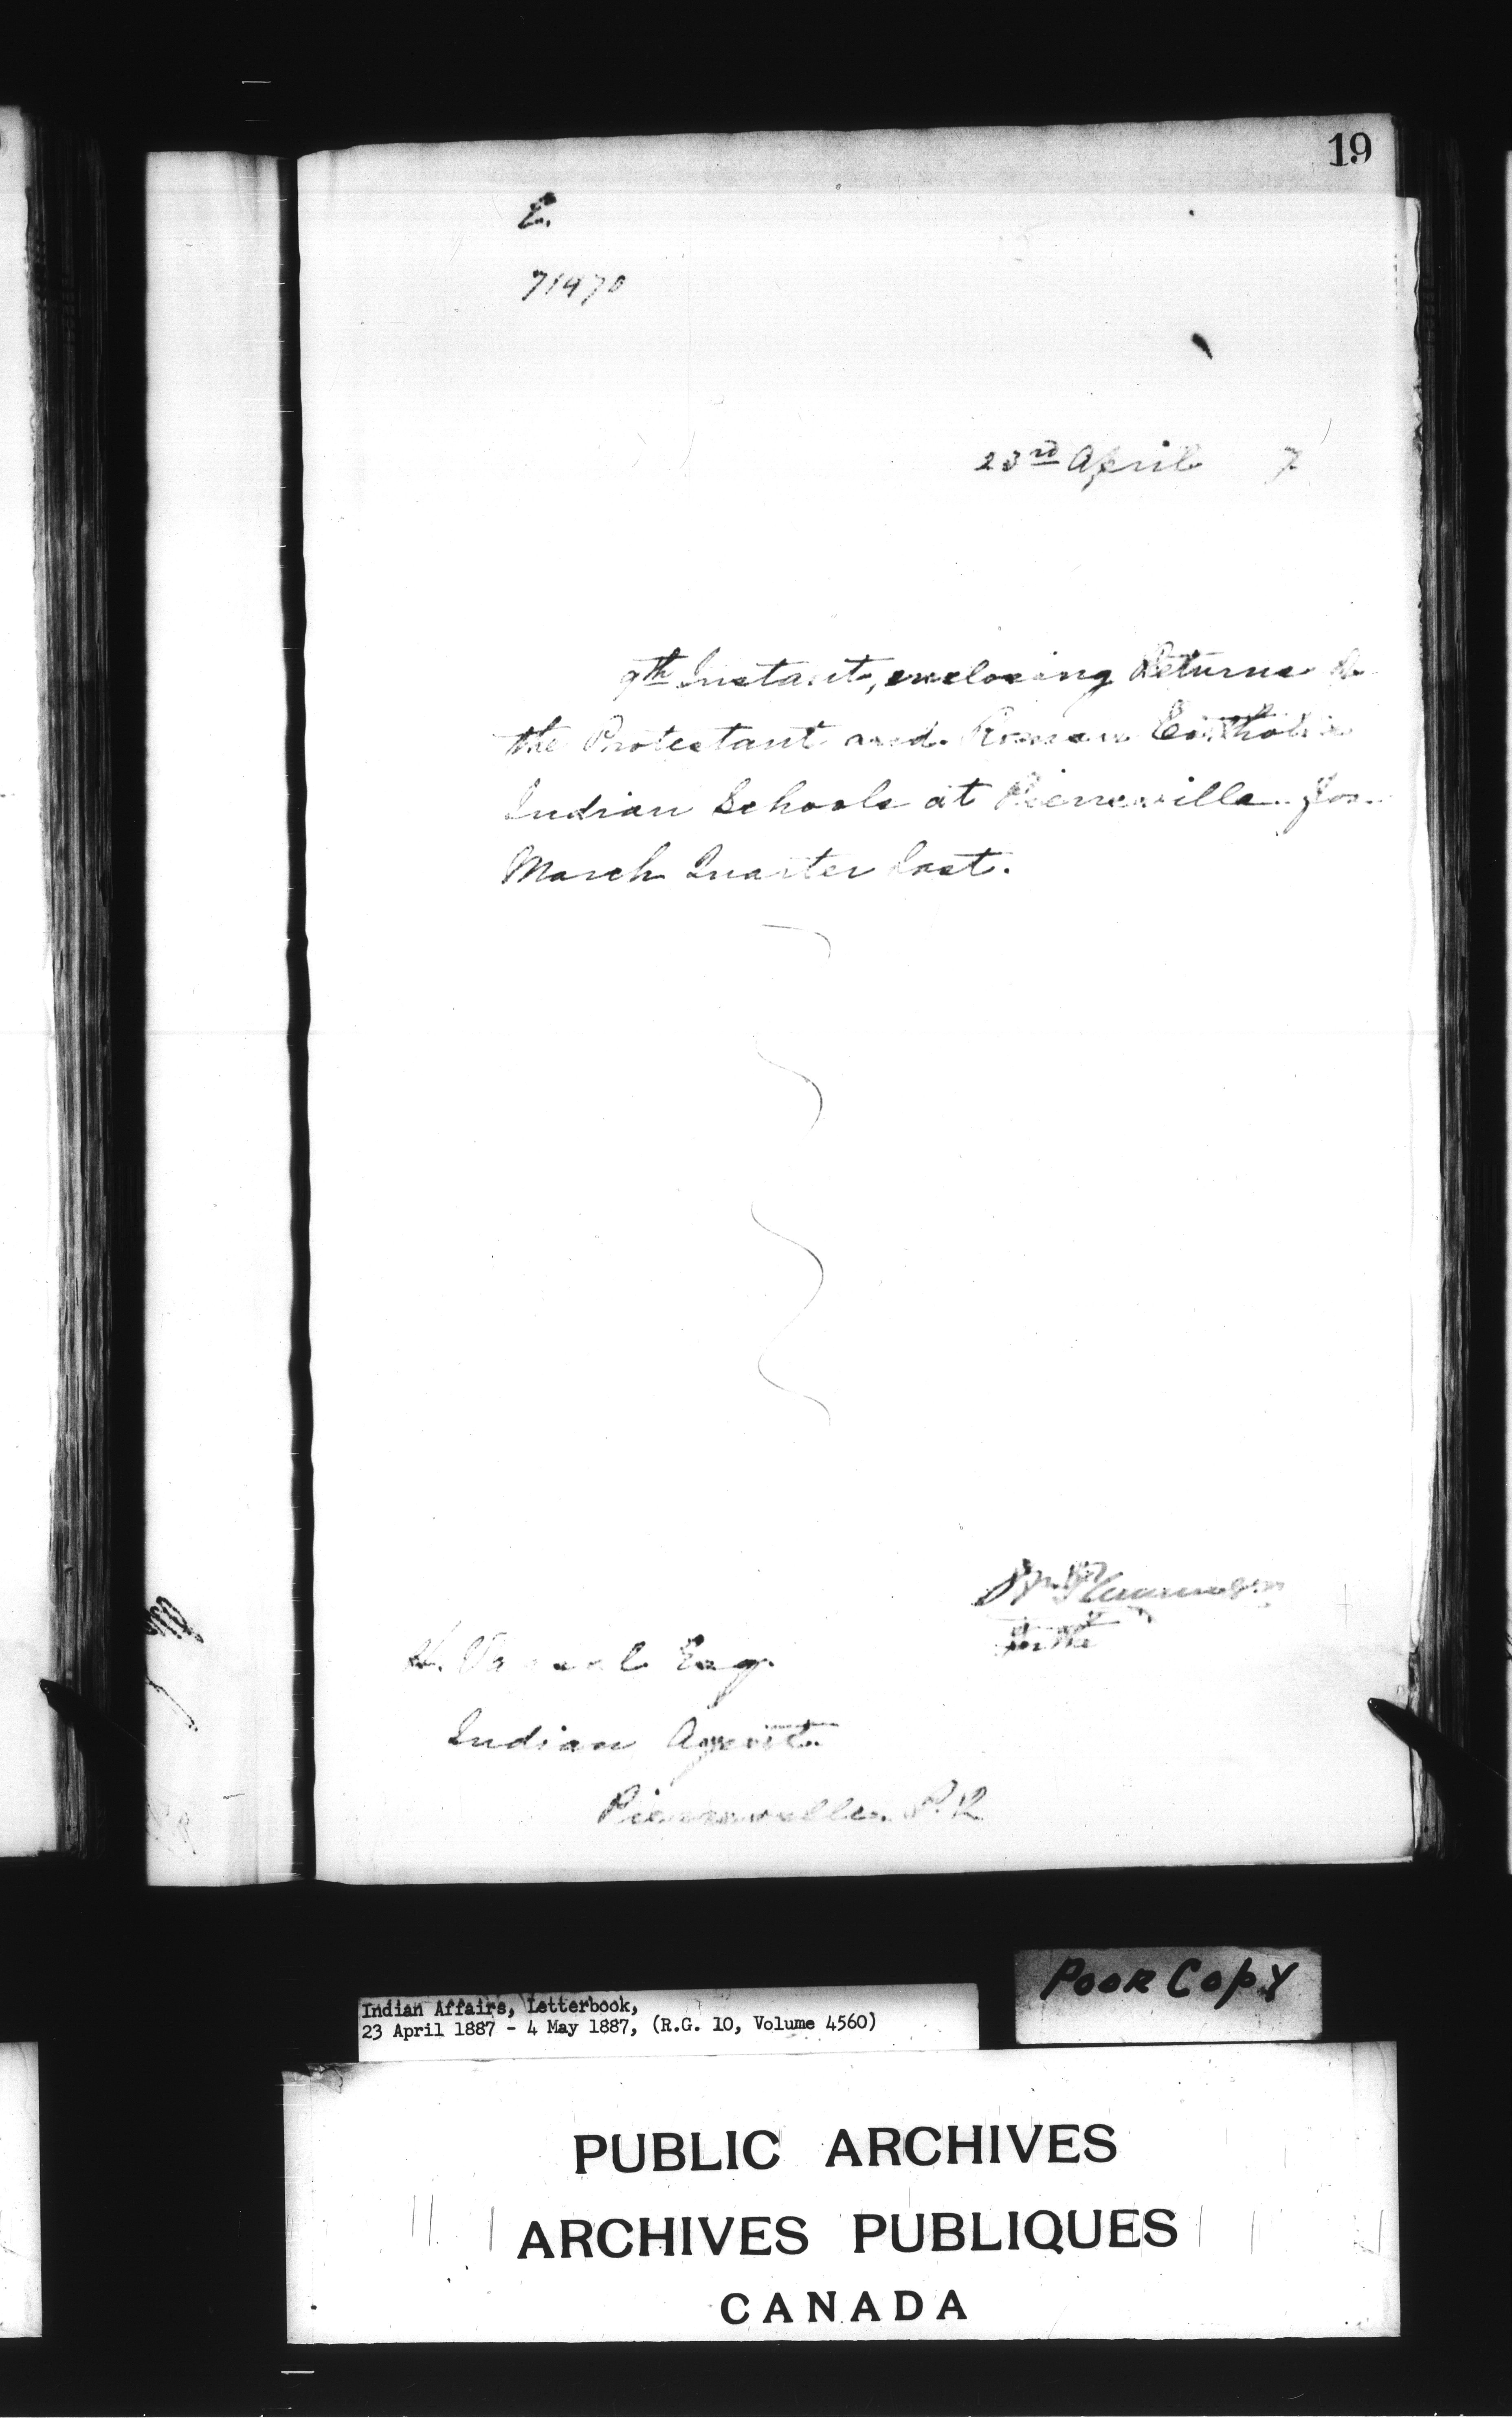 19
L.
71470
23rd April 7
9th Instant, enclosing Returns
the Protestant and Roman Catholic
Indian Schools at Pierreville for
March Quarter last.
for the
H. Esq.
Indian Agent
Pierreville. P.Q.
Indian Affairs, Letterbook,
23 April 1887 - 4 May 1887, (R.G. 10, Volume 4560)
POOR COPY
PUBLIC ARCHIVES
ARCHIVES PUBLIQUES
CANADA